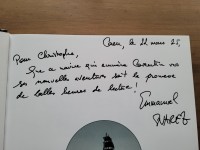 Caen, le 22 mars 25,
Pour Christophe,
Que ce navire qui emmène Corentin vers
ses nouvelles aventures soit le promesse
de belles heures de lecture !
Emmanuel